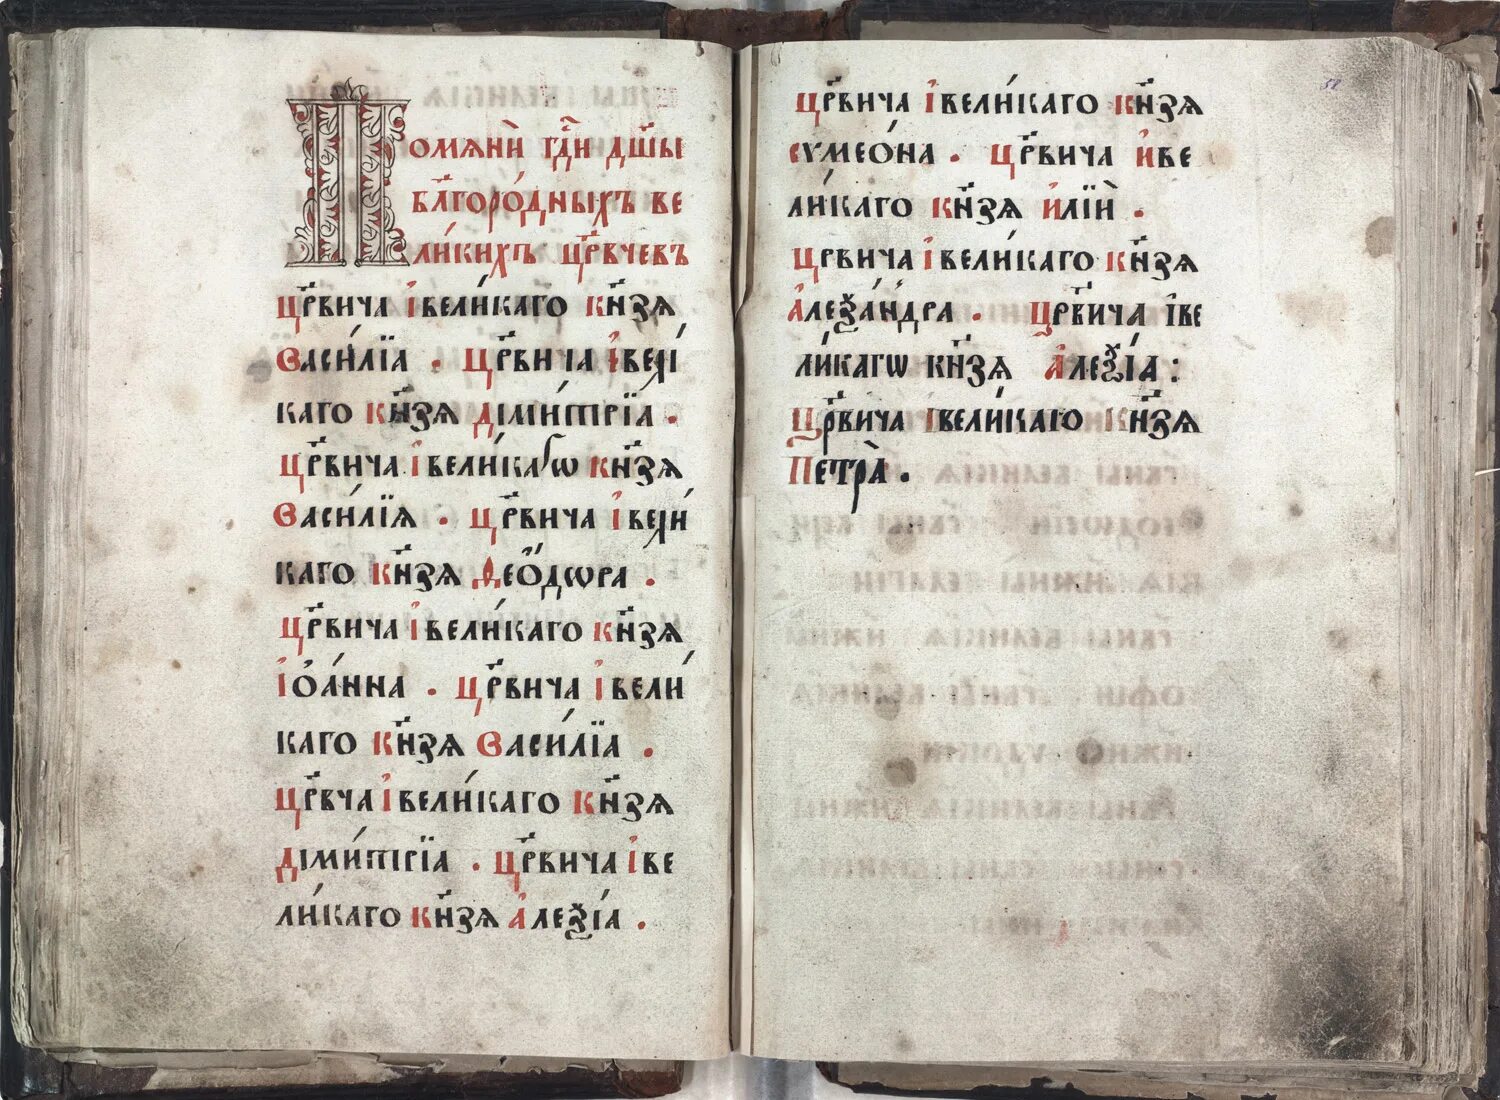 Помѧнѝ гд҇и дш҃ы
бл҃горо́дныхъ ве
ли́кихъ цр҃вчевъ
цр҃вича і҆вели́каго кн҃зѧ
Васи́лїѧ . цр҃вича і҆вели́
каго кн҃зѧ Дими́трїѧ .
цр҃вича і҆вели́кагѡ кн҃зѧ
Васи́лїѧ . цр҃вича і҆вели́
каго кн҃зѧ Ѳео́дѡра .
цр҃вича і҆вели́каго кн҃зѧ
Іѡа́нна . цр҃вича і҆вели́
каго кн҃зѧ Васи́лїѧ .
цр҃вча і҆вели́каго кн҃зѧ
Дими́трїѧ . цр҃вича і҆ве
ли́каго кн҃зѧ Алеѯі́а .
цр҃вича і҆вели́каго кн҃зѧ
сѵмео́на . цр҃вича и҆ве
ли́каго кн҃зѧ Илїѝ .
црвича і҆вели́каго кн҃зѧ
Алеѯа́ндра . цр҃вича і҆ве
ли́кагѡ кн҃зѧ Алеѯі́а :
цр҃вича і҆вели́каго кн҃зѧ
Петра̀ .